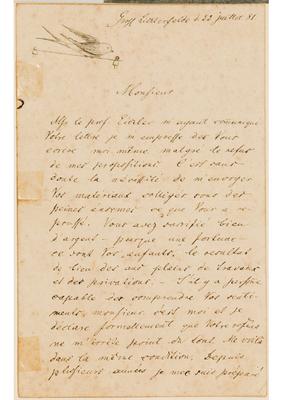 Gross Lichterfelde d. 22 juillet 81
Monsieur
le prof. Eichler m'ayant communiqué
Votre lettre je m'empresse de Vous
écrire moi même, malgré le refus
de mes propositions. C'est sans
doute la de m'envoyer
Vos matériaux, colligés sous des
peines enormes ce que Vous a re-
poussé. Vous avez sacrifié bien
d'argent – presque une fortune –
ce sont Vos enfants, le résultat
de bien des ans pleins de travaux
et des privations. – S'il y a personne
capable de comprendre Vos senti-
ments, monsieur, c'est moi et je
déclare formellement que Votre refus
ne m'excite point du tout. Me voilà
dans la même condition. Depuis
plusieurs années je me suis préparé